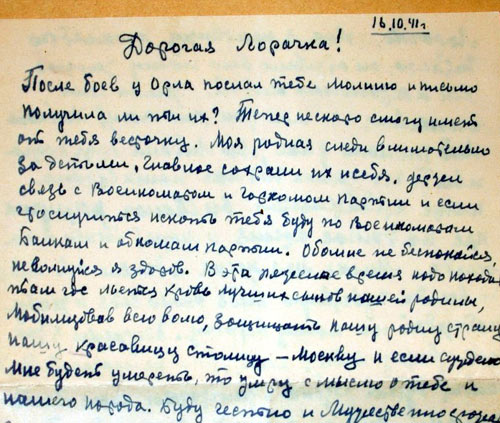 16.10.41 г
Дорогая Лорачка!
После боев у Орла послал тебе молнию и письмо
получила ли ты их? Теперь нескоро смогу иметь
от тебя весточку. Моя родная следи внимательно
за детьми, главное сохрани их и себя, держи
связь с Военкоматом и Горкомом партии и если
что случиться искать тебя буду по Военкоматам
Банкам и обкомам партии. Обомне не беспокойся,
не волнуйся я здоров. В эта тяжелые время надо
там где льется кровь лучших сынов нашей родины,
мобилизовав всю волю, защищать нашу родную страну
нашу красавицу столицу – Москву и если суждено
мне будет умереть, то умру с мыслю о тебе и
нашего народа. Буду честно и мужественно